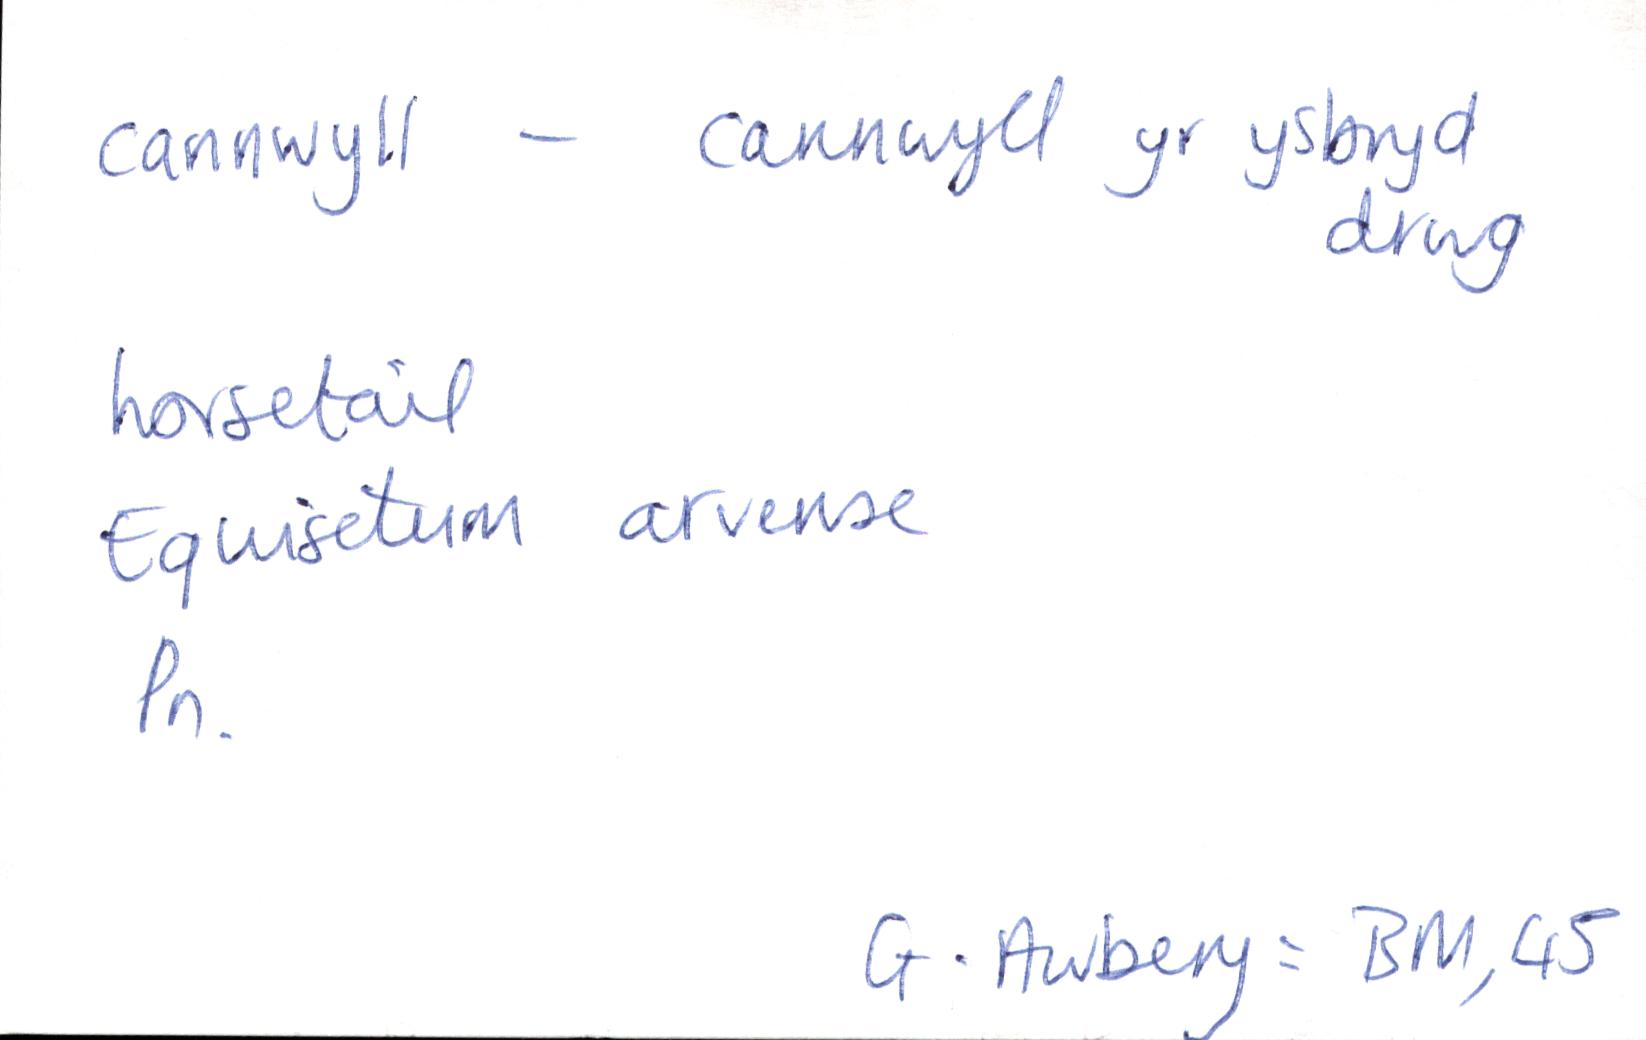 cannwyll – cannwyll yr ysbryd
drwg
horsetail
Equisetum arvense
Pn.
G. Awbery = BM, 45